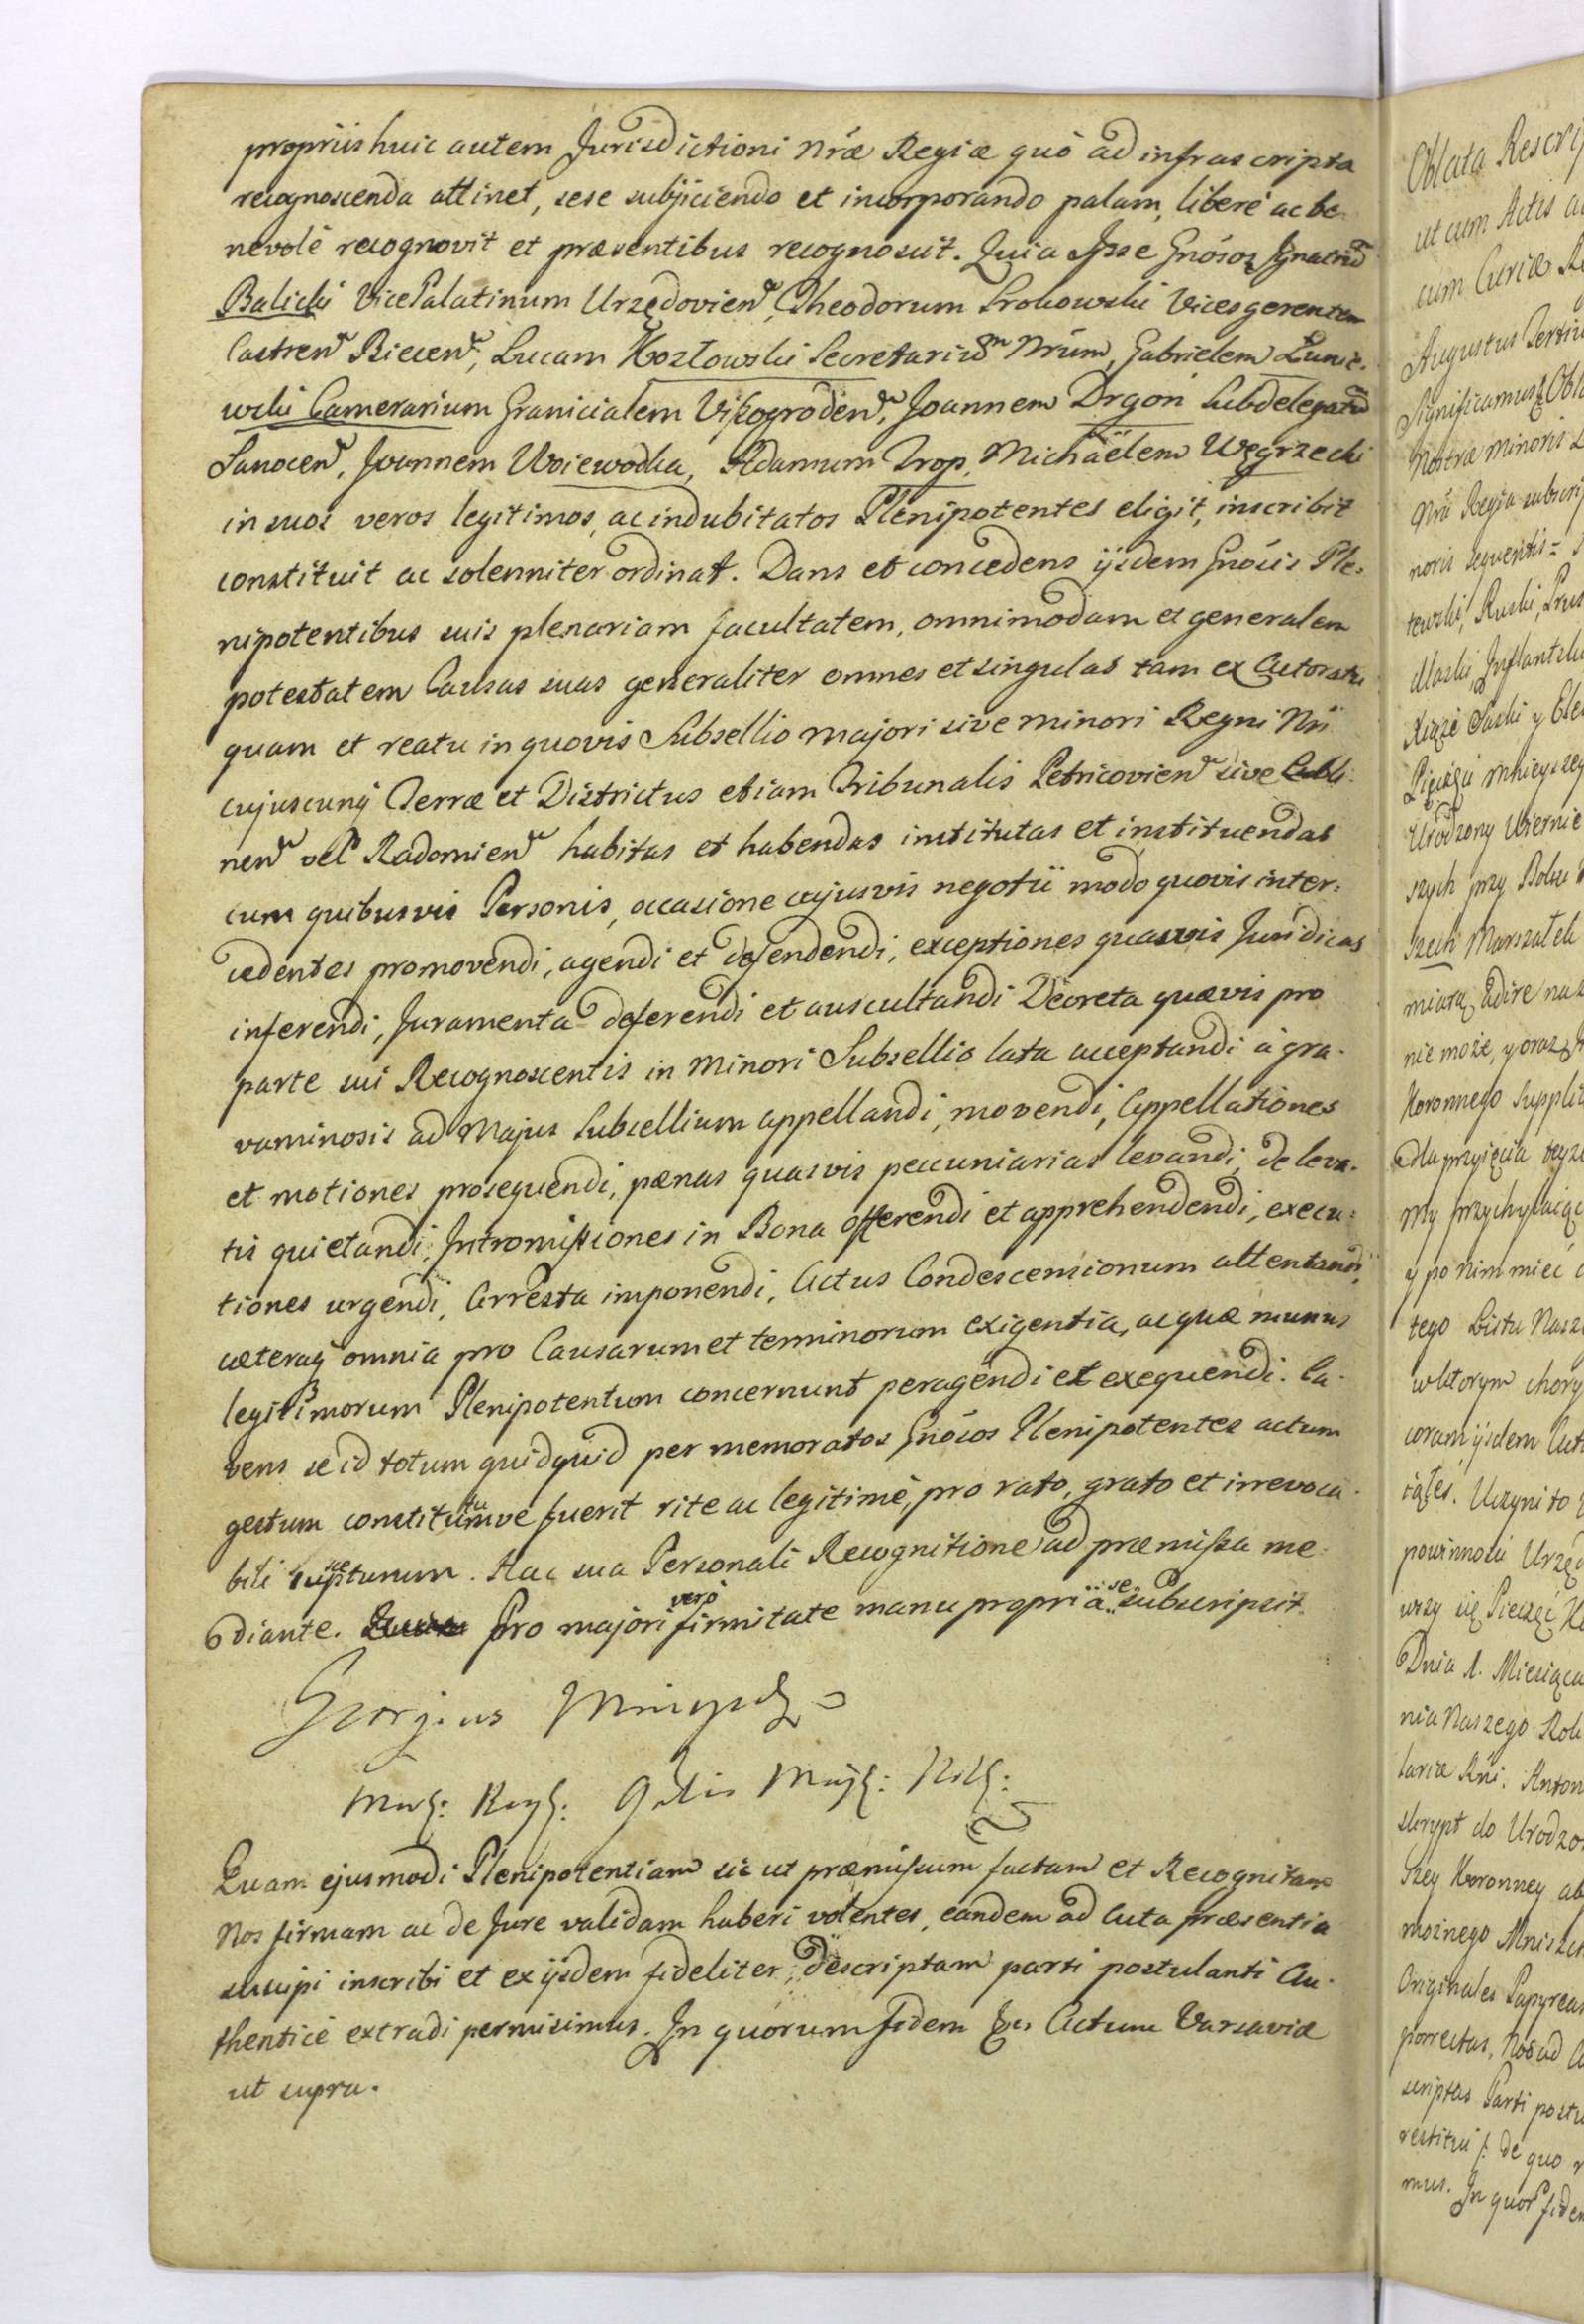 propriis huic autem Jurisdictioni Nræ Regiæ quò ad infrascripta
recognoscenda attinet, sese subjiciendo et incorporando palam, liberè ac be-
nevolè recognovit et præsentibus recognoscit. Quia Ipse Gnósos Ignatiũ
Balicki VicePalatinum Urzędovien, Theodorum Srokowski Vicesgerentem
Castren Biecen, Lucam Kozłowski Secretariũm Nrũm, Gabrielem Łunie-
wski Camerarium Granicialem Vißogroden, Joannem Drgon Subdelegatũ
Sanocen, Joannem Woiewodka, Adamum Trop, Michaëlem Węgrzecki
in suos veros legitimos, ac indubitatos Plenipotentes eligit, inscribit
constituit ac solenniter ordinat. Dans et concedens ijsdem Gnósis Ple-
nipotentibus suis plenariam facultatem, omnimodam et generalem
potestatem Causas suas generaliter omnes et singulas tam ex Actoratu
quam et reatu in quovis Subsellio majori sive minori Regni Nri
cujuscunq Terræ et Districtus etiam Tribunalis Petricovien sive Lubli-
nen vel Radomien habitas et habendas institutas et instituendas
cum quibusvis Personis, occasione cujusvis negotii modo quovis inter-
cedentes promovendi, agendi et defendendi, exceptiones quasvis Juridicas
inferendi, Juramenta deferendi et auscultandi Decreta quævis pro
parte sui Recognoscentis in Minori Subsellio lata acceptandi à gra-
vaminosis ad Majus Subsellium appellandi, movendi, Appellationes
et motiones prosequendi, pænas quasvis pecuniarias levandi, de leva-
tis quietandi, Intromißiones in Bona offerendi et apprehendendi, execu-
tiones urgendi, Arresta imponendi, Actus Condescensionum attentandi,
cæteraq omnia pro Causarum et terminorum exigentia, ac quæ munus
legitimorum Plenipotentum concernunt peragendi et exequendi. Ca-
vens se id totum quidquid per memoratos Gnósos Plenipotentes actum
gestum constitutumve fuerit rite ac legitimè, pro rato, grato et irrevoca-
bili suscepturum. Hac sua Personali Recognitione ad præmißa me-
diante. Pro majori verò firmitate manu propria se subscripsit.
Georgius Mniszch
Quam ejusmodi Plenipotentiam sic ut præmißum factam et Recognitam
Nos firmam ac de Jure validam haberi volentes, eandem ad Acta præsentia
suscipi inscribi et ex ijsdem fideliter descriptam parti postulanti Au-
thenticè extradi permisimus. In quorum fidem &c. Actum Varsaviæ
ut supra.
Oblata Rescrip
ut cum Actis
cum Curiæ
Augustus Tertius
Significamus
Nostræ Minoris
Nrã Regia subscrip
noris sequentis =
tewski, Ruski, Prus
Inflantski
Xiąże Saski y Ele
Pieczęci mnieyszey
Urodzony Wiernie
szych przy Boku
szech Marszałek
nie może, y oraz
Koronnego
dla przyięcia teyże
my przychylaiąc
y po nim mieć
tego Listu Nasze
w ktorym chory
coram ijsdem
Uczyni to
powinności Urzęd
wszy się Pieczęć
Dnia 1. Miesiąca
nia Naszego Rok
Anton
skrypt do Urodzo
szey Koronney
możnego Mniszch
Originales Papyreas
porrectas, Nos ad
scriptas Parti postu
restitui de quo
mus. In quor fidem